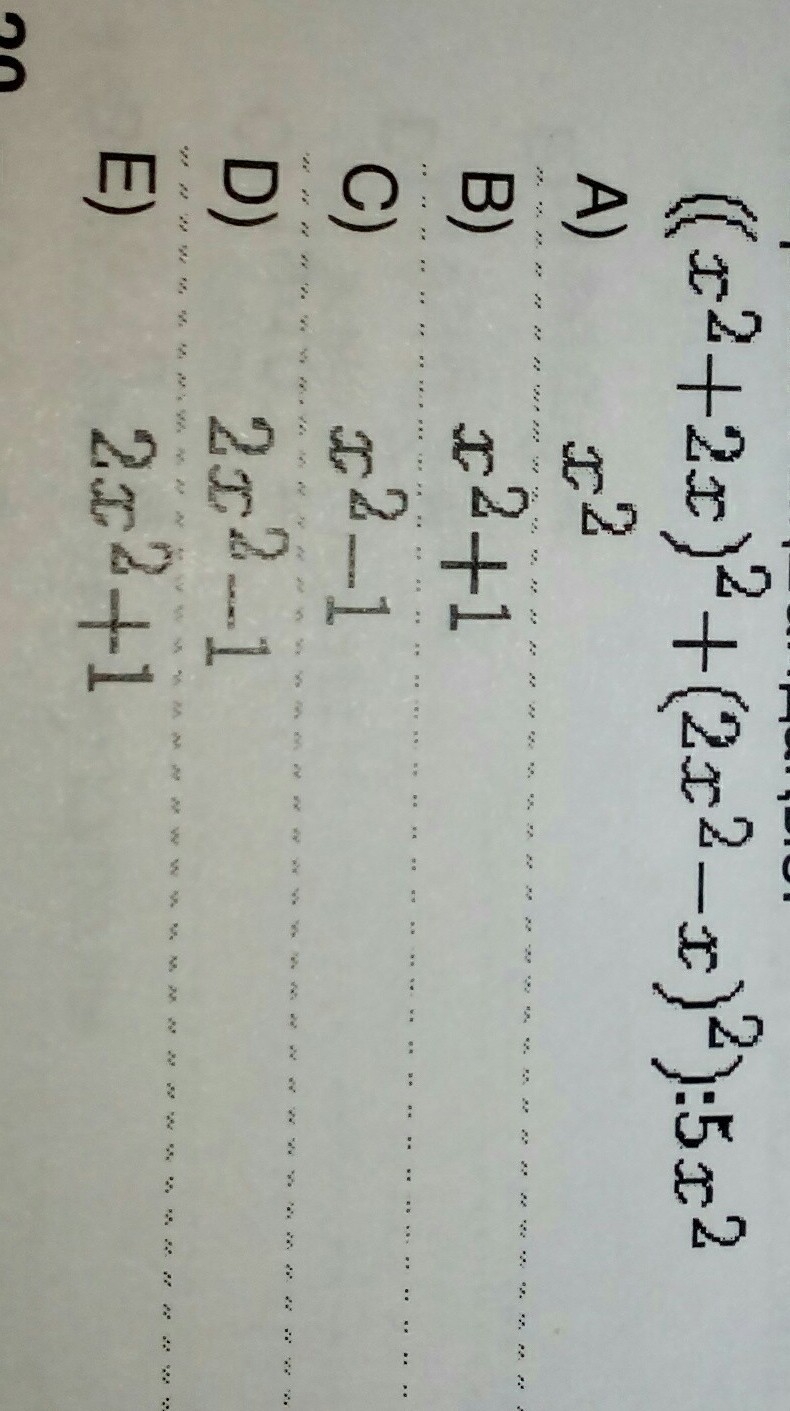 ((x²+2x)²+(2x²−x)²):5x²
A) x²
B) x²+1
C) x²−1
D) 2x²−1
E) 2x²+1